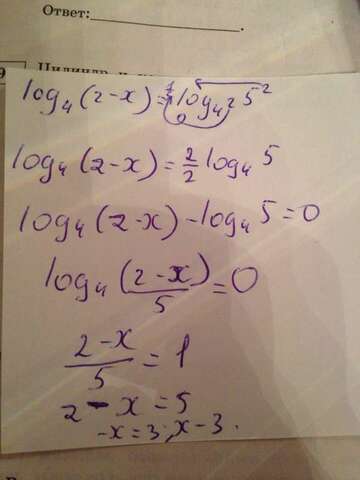 Ответ:
9
Цилиндр и
log₄(2-x)=log₄² 5²
log₄(2-x)=2/2 log₄ 5
log₄(2-x)-log₄ 5=0
log₄((2-x)/5)=0
(2-x)/5=1
2-x=5
-x=3; x-3.